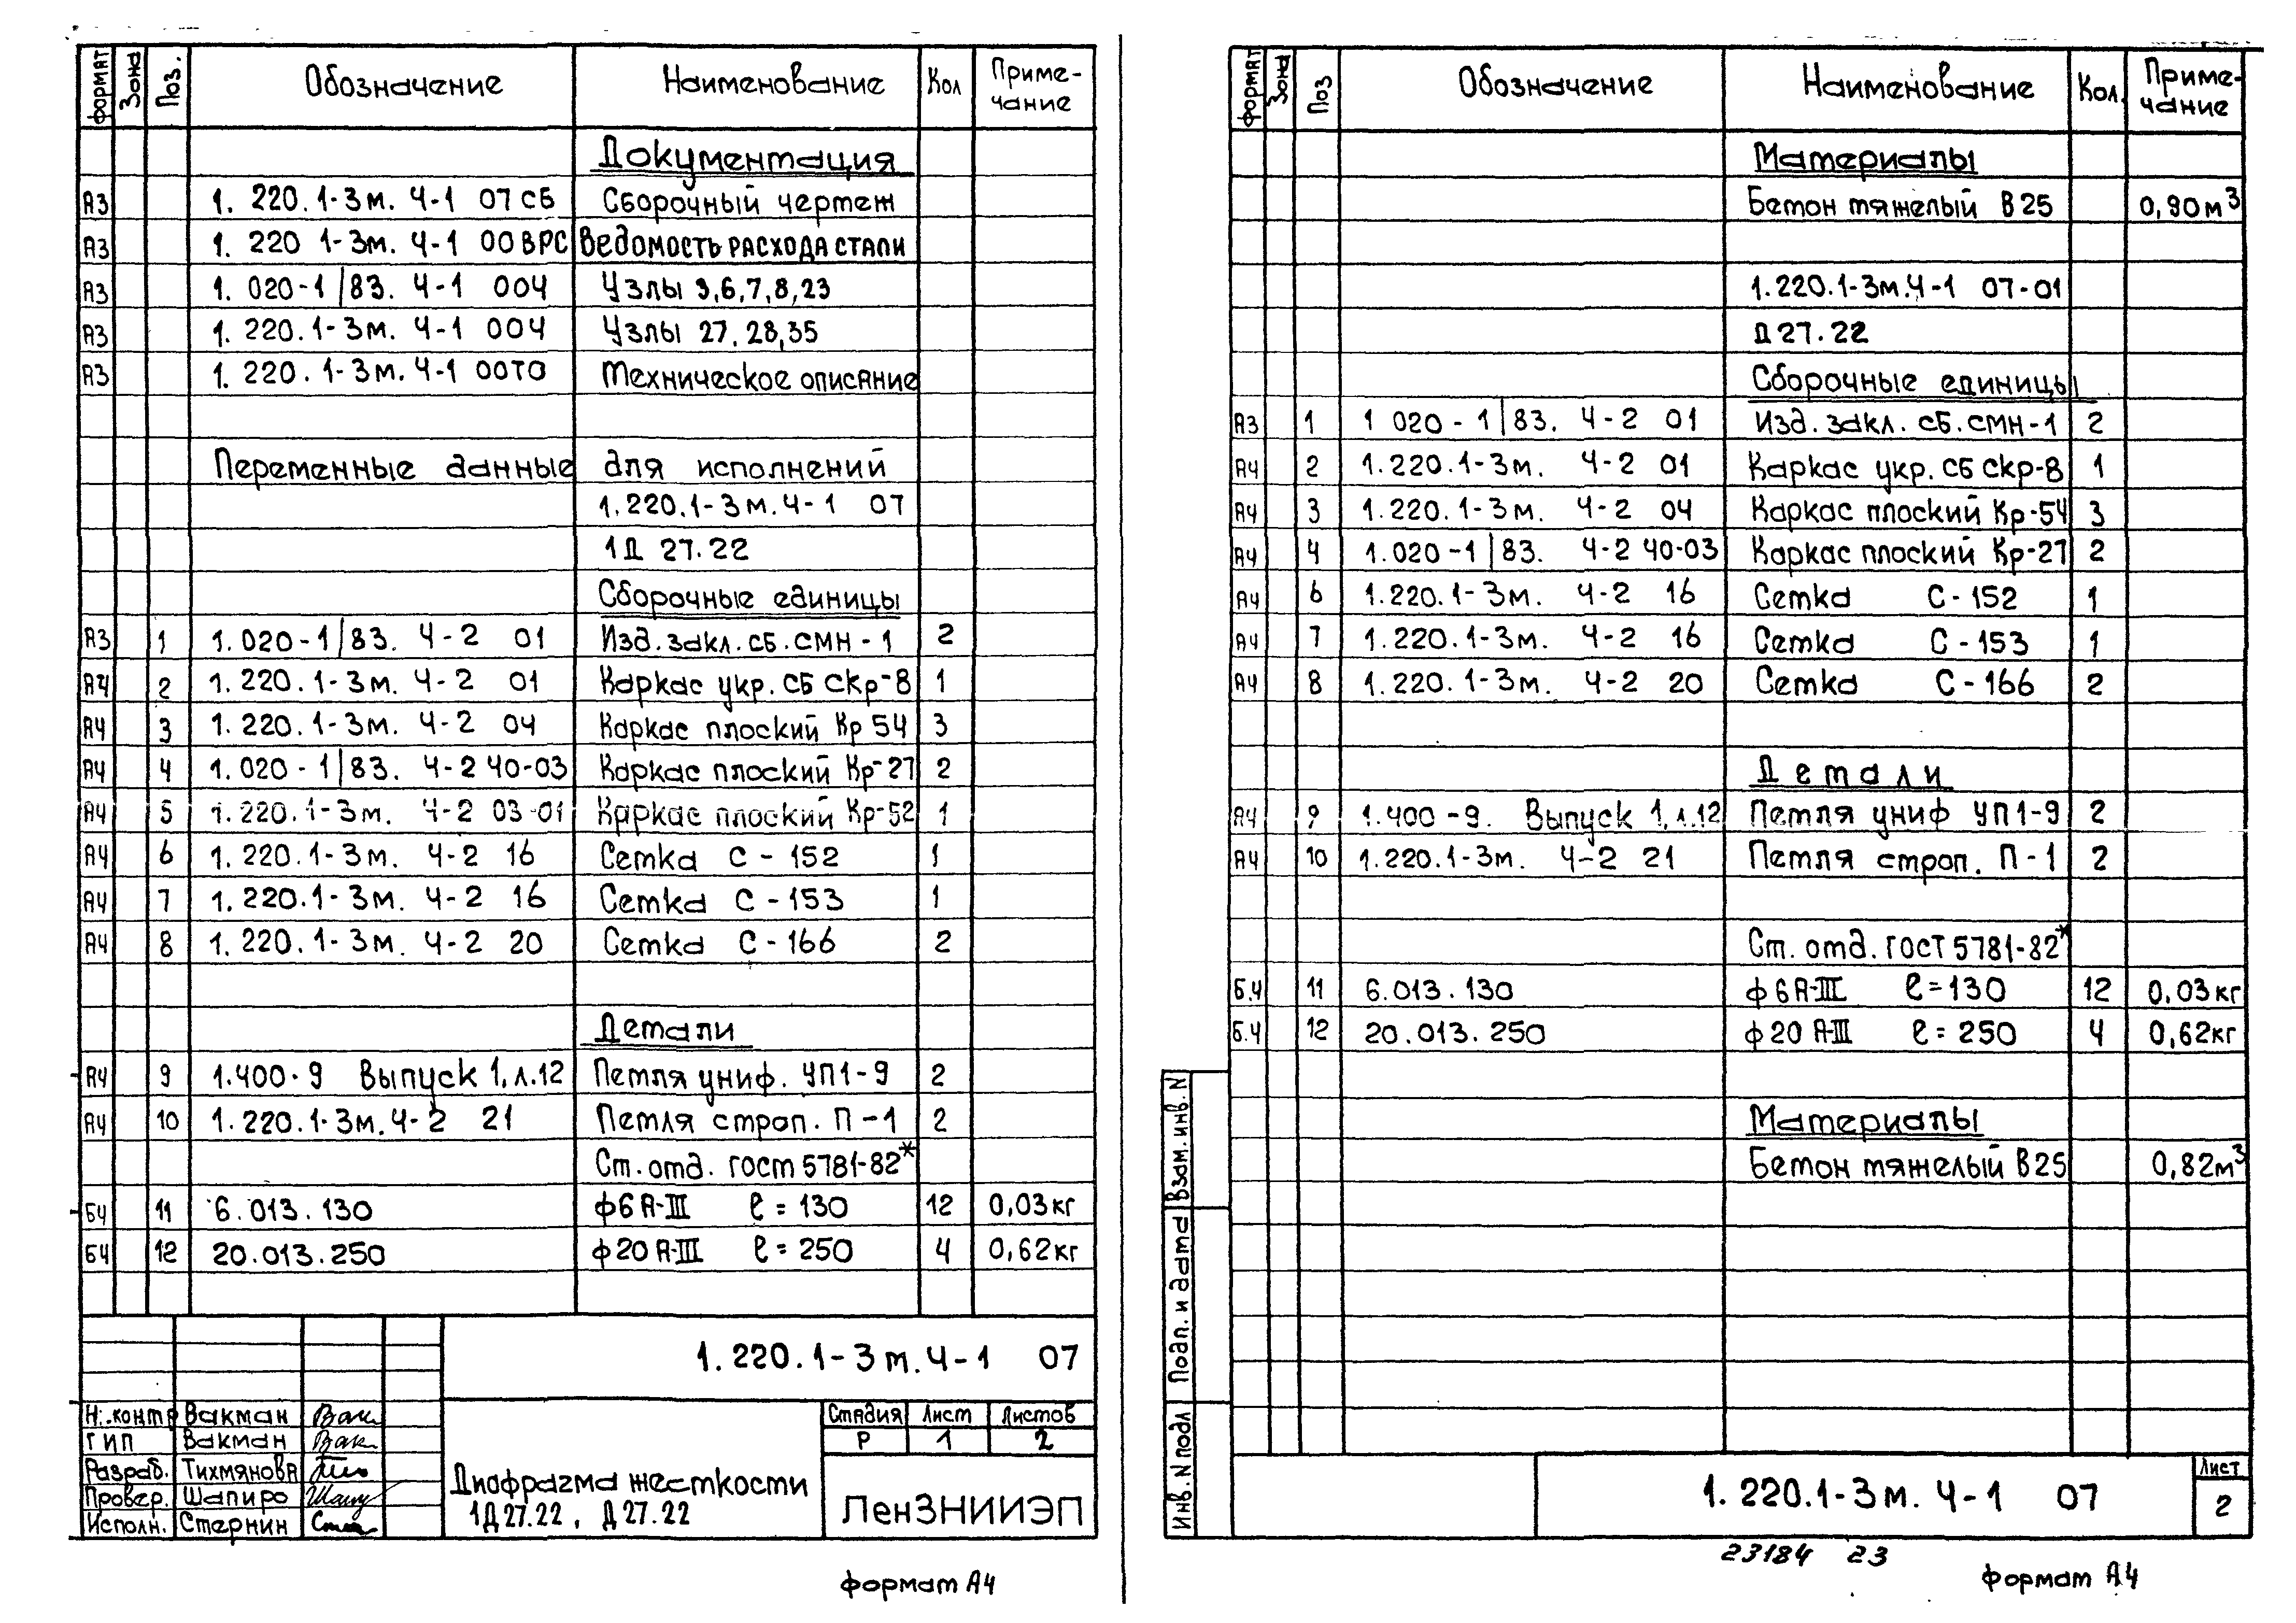 формат Зона Поз. Обозначение Наименование Кол Приме-
чание
Документация
А3 1. 220.1-3м. Ч-1 07СБ Сборочный чертеж
А3 1. 220 1-3м. Ч-1 00ВРС Ведомость расхода стали
А3 1. 020-1/83. Ч-1 004 Узлы 3,6,7,8,23
А3 1. 220.1-3м. Ч-1 004 Узлы 27,28,35
А3 1. 220.1-3м. Ч-1 00ТО Техническое описание
Переменные данные для исполнений
1.220.1-3м.Ч-1 07
1Д 27.22
Сборочные единицы
А3 1 1.020-1/83. Ч-2 01 Изд.закл.сб.СМН-1 2
А4 2 1.220.1-3м. Ч-2 01 Каркас укр.сб СКр-8 1
А4 3 1.220.1-3м. Ч-2 04 Каркас плоский Кр 54 3
А4 4 1.020-1/83. Ч-2 40-03 Каркас плоский Кр-27 2
А4 5 1.220.1-3м. Ч-2 03-01 Каркас плоский Кр-52 1
А4 6 1.220.1-3м. Ч-2 16 Сетка С-152 1
А4 7 1.220.1-3м. Ч-2 16 Сетка С-153 1
А4 8 1.220.1-3м. Ч-2 20 Сетка С-166 2
Детали
А4 9 1.400-9 Выпуск 1,л.12 Петля униф. УП1-9 2
А4 10 1.220.1-3м.Ч-2 21 Петля строп. П-1 2
Ст.отд. ГОСТ 5781-82*
БЧ 11 6.013.130 ф6А-III ℓ=130 12 0,03кг
БЧ 12 20.013.250 ф20А-III ℓ=250 4 0,62кг
1.220.1-3м.Ч-1 07
Н.контр Вакман
ГИП Вакман
Разраб. Тихмянова
Провер. Шапиро
Исполн. Стернин
Диафрагма жесткости
1Д27.22, Д27.22
Стадия Лист Листов
Р 1 2
ЛенЗНИИЭП
формат А4
формат Зона Поз Обозначение Наименование Кол. Приме-
чание
Материалы
Бетон тяжелый В25 0,90м³
1.220.1-3м.Ч-1 07-01
Д27.22
Сборочные единицы
А3 1 1 020-1/83. Ч-2 01 Изд.закл.сб.СМН-1 2
А4 2 1.220.1-3м. Ч-2 01 Каркас укр.сб СКр-8 1
А4 3 1.220.1-3м. Ч-2 04 Каркас плоский Кр-54 3
А4 4 1.020-1/83. Ч-2 40-03 Каркас плоский Кр-27 2
А4 6 1.220.1-3м. Ч-2 16 Сетка С-152 1
А4 7 1.220.1-3м. Ч-2 16 Сетка С-153 1
А4 8 1.220.1-3м. Ч-2 20 Сетка С-166 2
Детали
А4 9 1.400-9. Выпуск 1,л.12 Петля униф УП1-9 2
А4 10 1.220.1-3м. Ч-2 21 Петля строп. П-1 2
Ст.отд.ГОСТ 5781-82*
Б.Ч 11 6.013.130 ф6А-III ℓ=130 12 0,03кг
Б.Ч 12 20.013.250 ф20А-III ℓ=250 4 0,62кг
Материалы
Бетон тяжелый В25 0,82м³
Взам.инв.N
Подп. и дата
Инв.N подл
1.220.1-3м. Ч-1 07
Лист
2
23184 23
формат А4